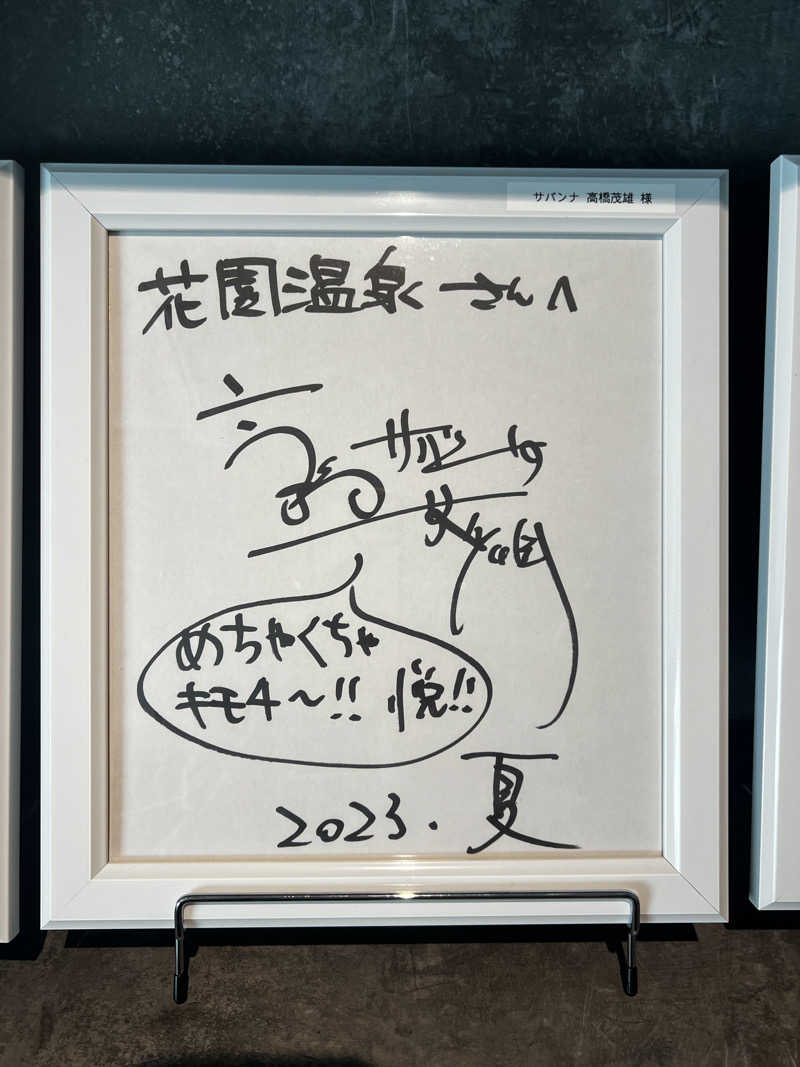 サバンナ 高橋茂雄 様
花園温泉さんへ
サバンナ
高
茂雄
めちゃくちゃ
キモチ〜!! 悦!!
2023. 夏